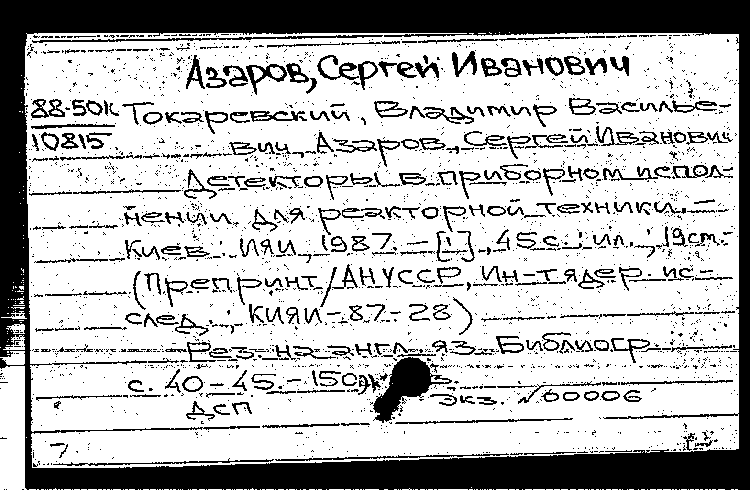 Азаров, Сергей Иванович
88-50К Токаревский, Владимир Василье-
10815 вич, Азаров, Сергей Иванович
Детекторы в приборном испол-
нении для реакторной техники. -
Киев : ИЯИ, 1987. - [1], 45 с. : ил. ; 19 см. -
(Препринт / АН УССР, Ин-т ядер. ис-
след. ; КИЯИ-87-28)
Рез. на англ. яз. Библиогр.
с. 40-45. - 150
ДСП экз. №00006
7